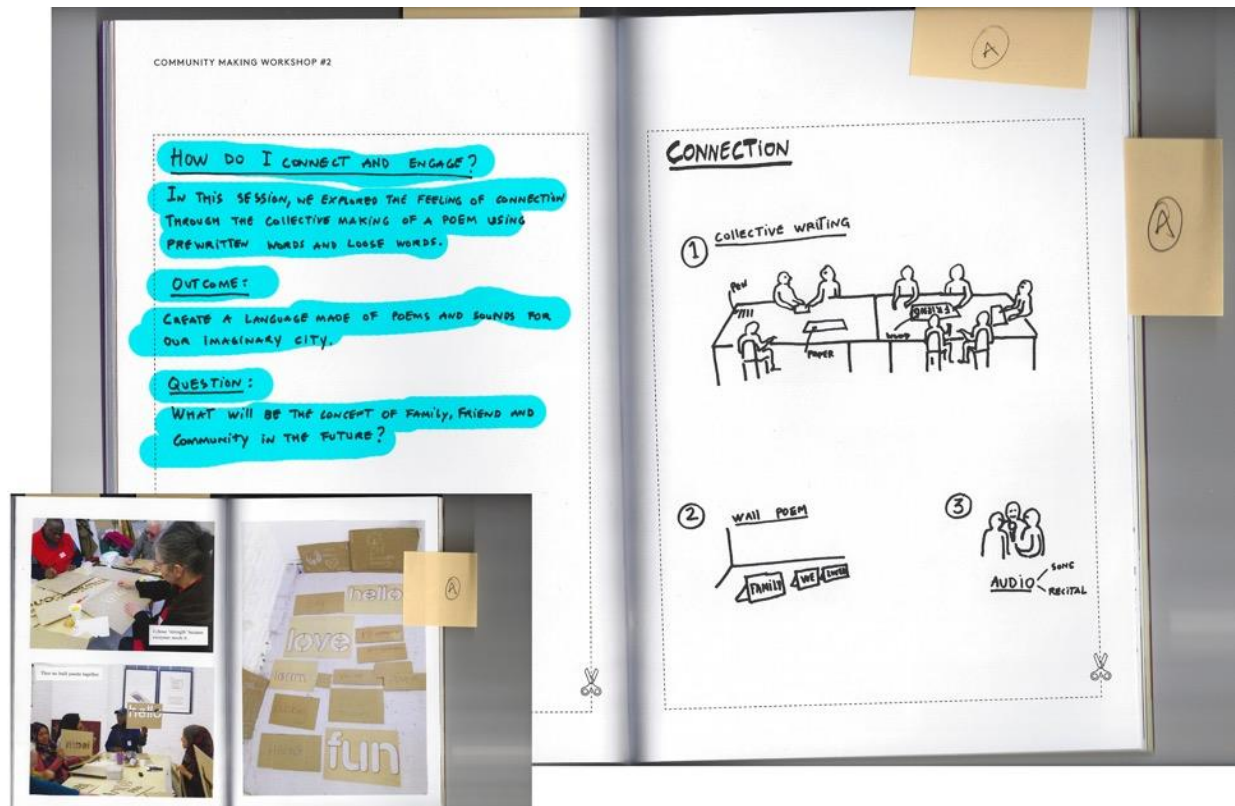 COMMUNITY MAKING WORKSHOP #2
HOW DO I CONNECT AND ENGAGE?
IN THIS SESSION, WE EXPLORED THE FEELING OF CONNECTION
THROUGH THE COLLECTIVE MAKING OF A POEM USING
PREWRITTEN WORDS AND LOOSE WORDS.
OUTCOME:
CREATE A LANGUAGE MADE OF POEMS AND SOUNDS FOR
OUR IMAGINARY CITY.
QUESTION:
WHAT WILL BE THE CONCEPT OF FAMILY, FRIEND AND
COMMUNITY IN THE FUTURE?
A
A
CONNECTION
1 COLLECTIVE WRITING
PEN
FRIEND
WOOD
PAPER
2 WALL POEM
FAMILY WE
3
AUDIO
SONG
RECITAL
I chose 'strength' because
everyone needs it
Then we built poems together
hello
hello
love
fun
A